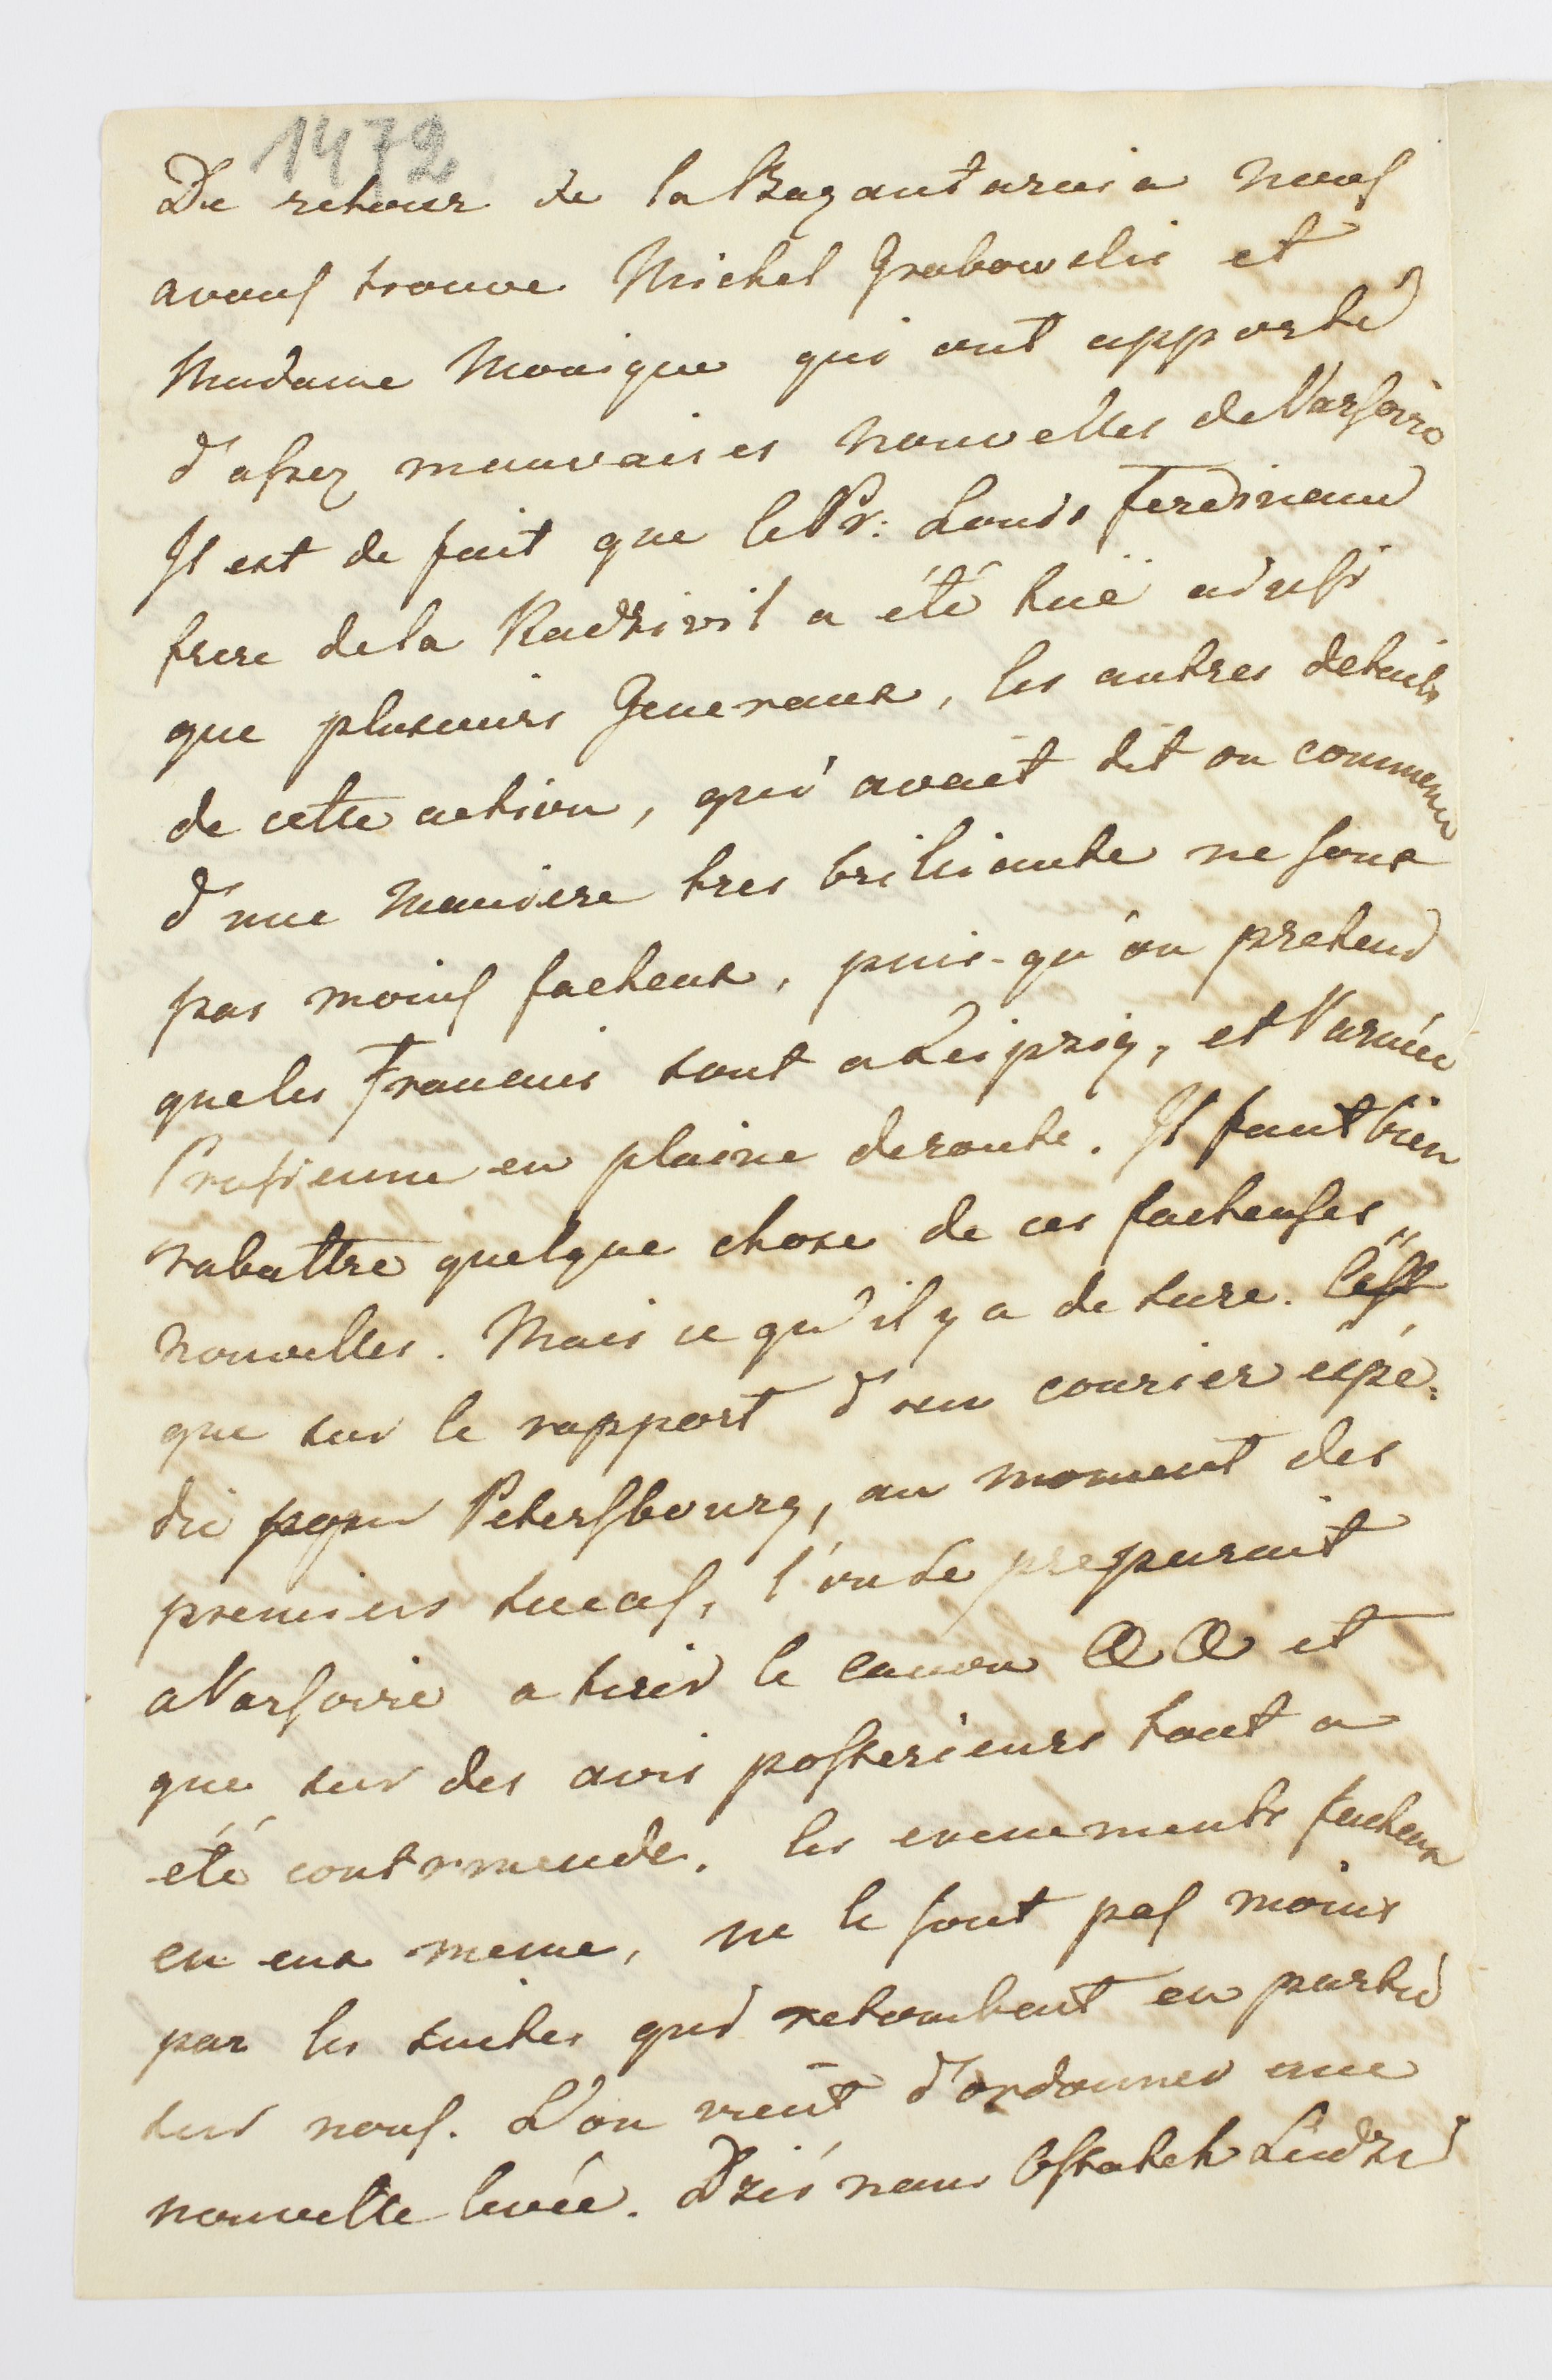 1472
De retour de la Bazantarnia nous
avons trouve Michel Grabowski et
Madame Monique qui ont apporté
d'assez mauvaises nouvelles de Varsovie
Il est de fait que le Pr: Louis Ferdinand
frere de la Radzivil a été tuë ainssi
que plusieurs Generaux, les autres details
de cette action, qui avait dit on commencé
d'une maniere tres briliante ne sont
pas moins facheux, puis-qu'on pretend
que les Francais sont a Leipzig, et l'armée
Prussienne en plaine deroute. Il faut bien
rabattre quelque chose de ces facheuses
nouvelles. Mais ce qu'il y a de sure. C'est
que sur le rapport d'un courier expé=
dié pour Petersbourg, au moment des
premiers succes, l'on se preparait
a Varsovie a tirer le canon et
que sur des avis posterieurs tout a
été contrmendé. les evenements facheux
en eux meme, ne le sont pas moins
par les suites qui retombent en partie
sur nous. L'on vient d'ordonner une
nouvelle levée. Dziś nam Ostatek Ludzi